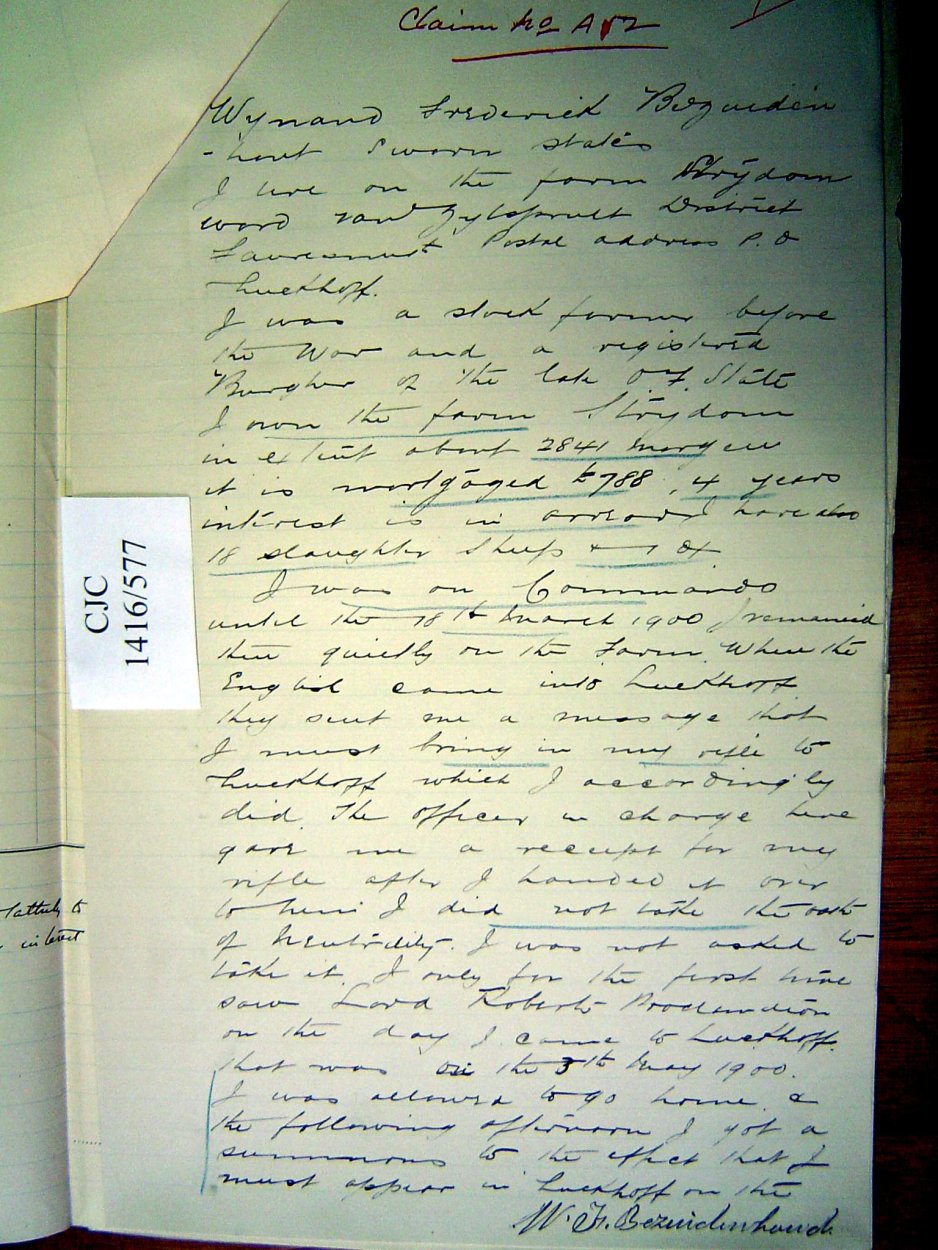 Claim No A
Wynand Frederick Bezuiden
-hout Sworn states
I live on the farm Strydom
ward van Zylspruit District
Fauresmith Postal address P.O
Luckhoff.
I was a stock farmer before
the War and a registered
Burgher of the late O.F. State
I own the farm Strydom
in extent about 2841 morgen
it is mortgaged £788, 4 years
interest is in arrear I have also
18 slaughter Sheep
I was on Commando
until the 18th March 1900 I remained
then quietly on the Farm. When the
English came into Luckhoff
they sent me a message that
I must bring in my rifle to
Luckhoff which I accordingly
did. The officer in charge here
gave me a receipt for my
rifle after I handed it over
to him I did not take the oath
of Neutrality. I was not asked to
take it. I only for the first time
saw Lord Roberts Proclamation
on the day I came to Luckhoff.
that was on the 3th May 1900.
I was allowed to go home &
the following afternoon I got a
summons to the effect that I
must appear in Luckhoff on the
W. F. Bezuidenhoudt
CJC
1416/577
to
interest